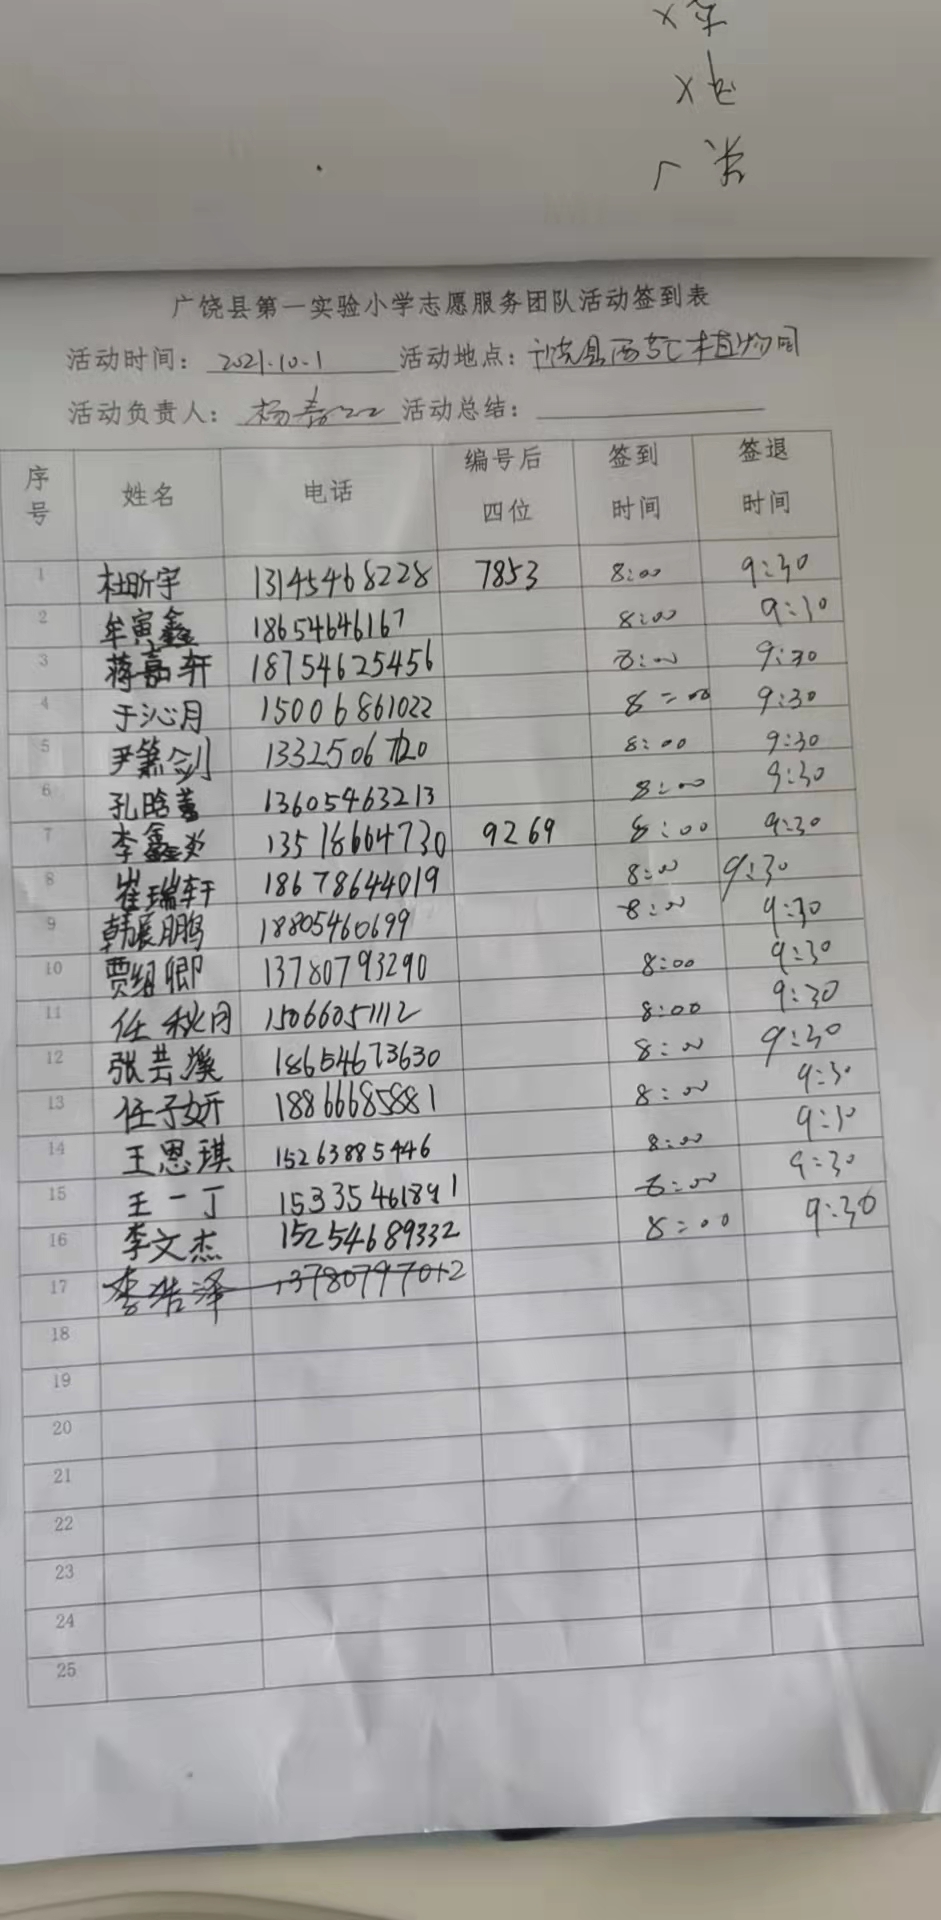 广饶县第一实验小学志愿服务团队活动签到表
活动时间：2021.10.1 活动地点：广饶县西 植物园
活动负责人：杨 活动总结：
序号 姓名 电话 编号后四位 签到时间 签退时间
1 杜昕宇 13145468228 7853 8:00 9:30
2 牟寅鑫 18654646167 8:00 9:30
3 蒋嘉轩 18754625456 8:00 9:30
4 于沁月 15006861022 8:00 9:30
5 尹箫剑 1332506 8:00 9:30
6 孔晗 13605463213 8:00 9:30
7 李鑫 13518664730 9269 8:00 9:30
8 崔瑞轩 18678644019 8:00 9:30
9 韩展鹏 18805460699 8:00 9:30
10 贾绍卿 13780793290 8:00 9:30
11 任秋月 15066051112 8:00 9:30
12 张芸溪 18654673630 8:00 9:30
13 任子妍 18866685881 8:00 9:30
14 王恩琪 15263885446 8:00 9:30
15 王一丁 15335461891 8:00 9:30
16 李文杰 15254689332 8:00 9:30
17 李浩泽 13780797012
18
19
20
21
22
23
24
25